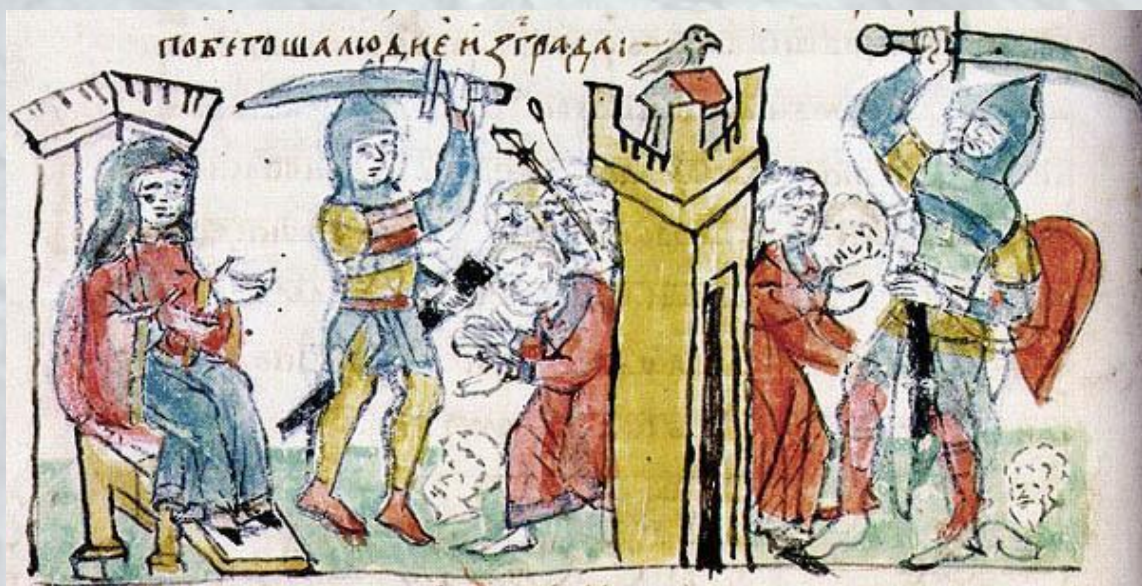 побегоша людие изъ града: